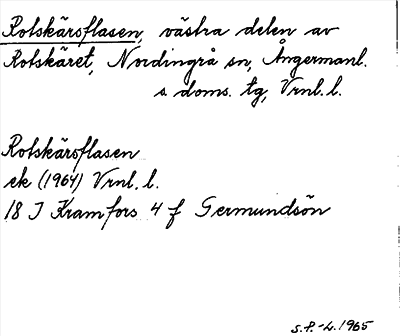 Rotskärsflasen, västra delen av
Rotskäret, Nordingrå sn, Ångermanl.
s doms. tg, Vrnl. l.
Rotskärsflasen
ek (1964) Vrnl. l.
18 I Kramfors 4 f Germundsön
S.P.-L. 1965